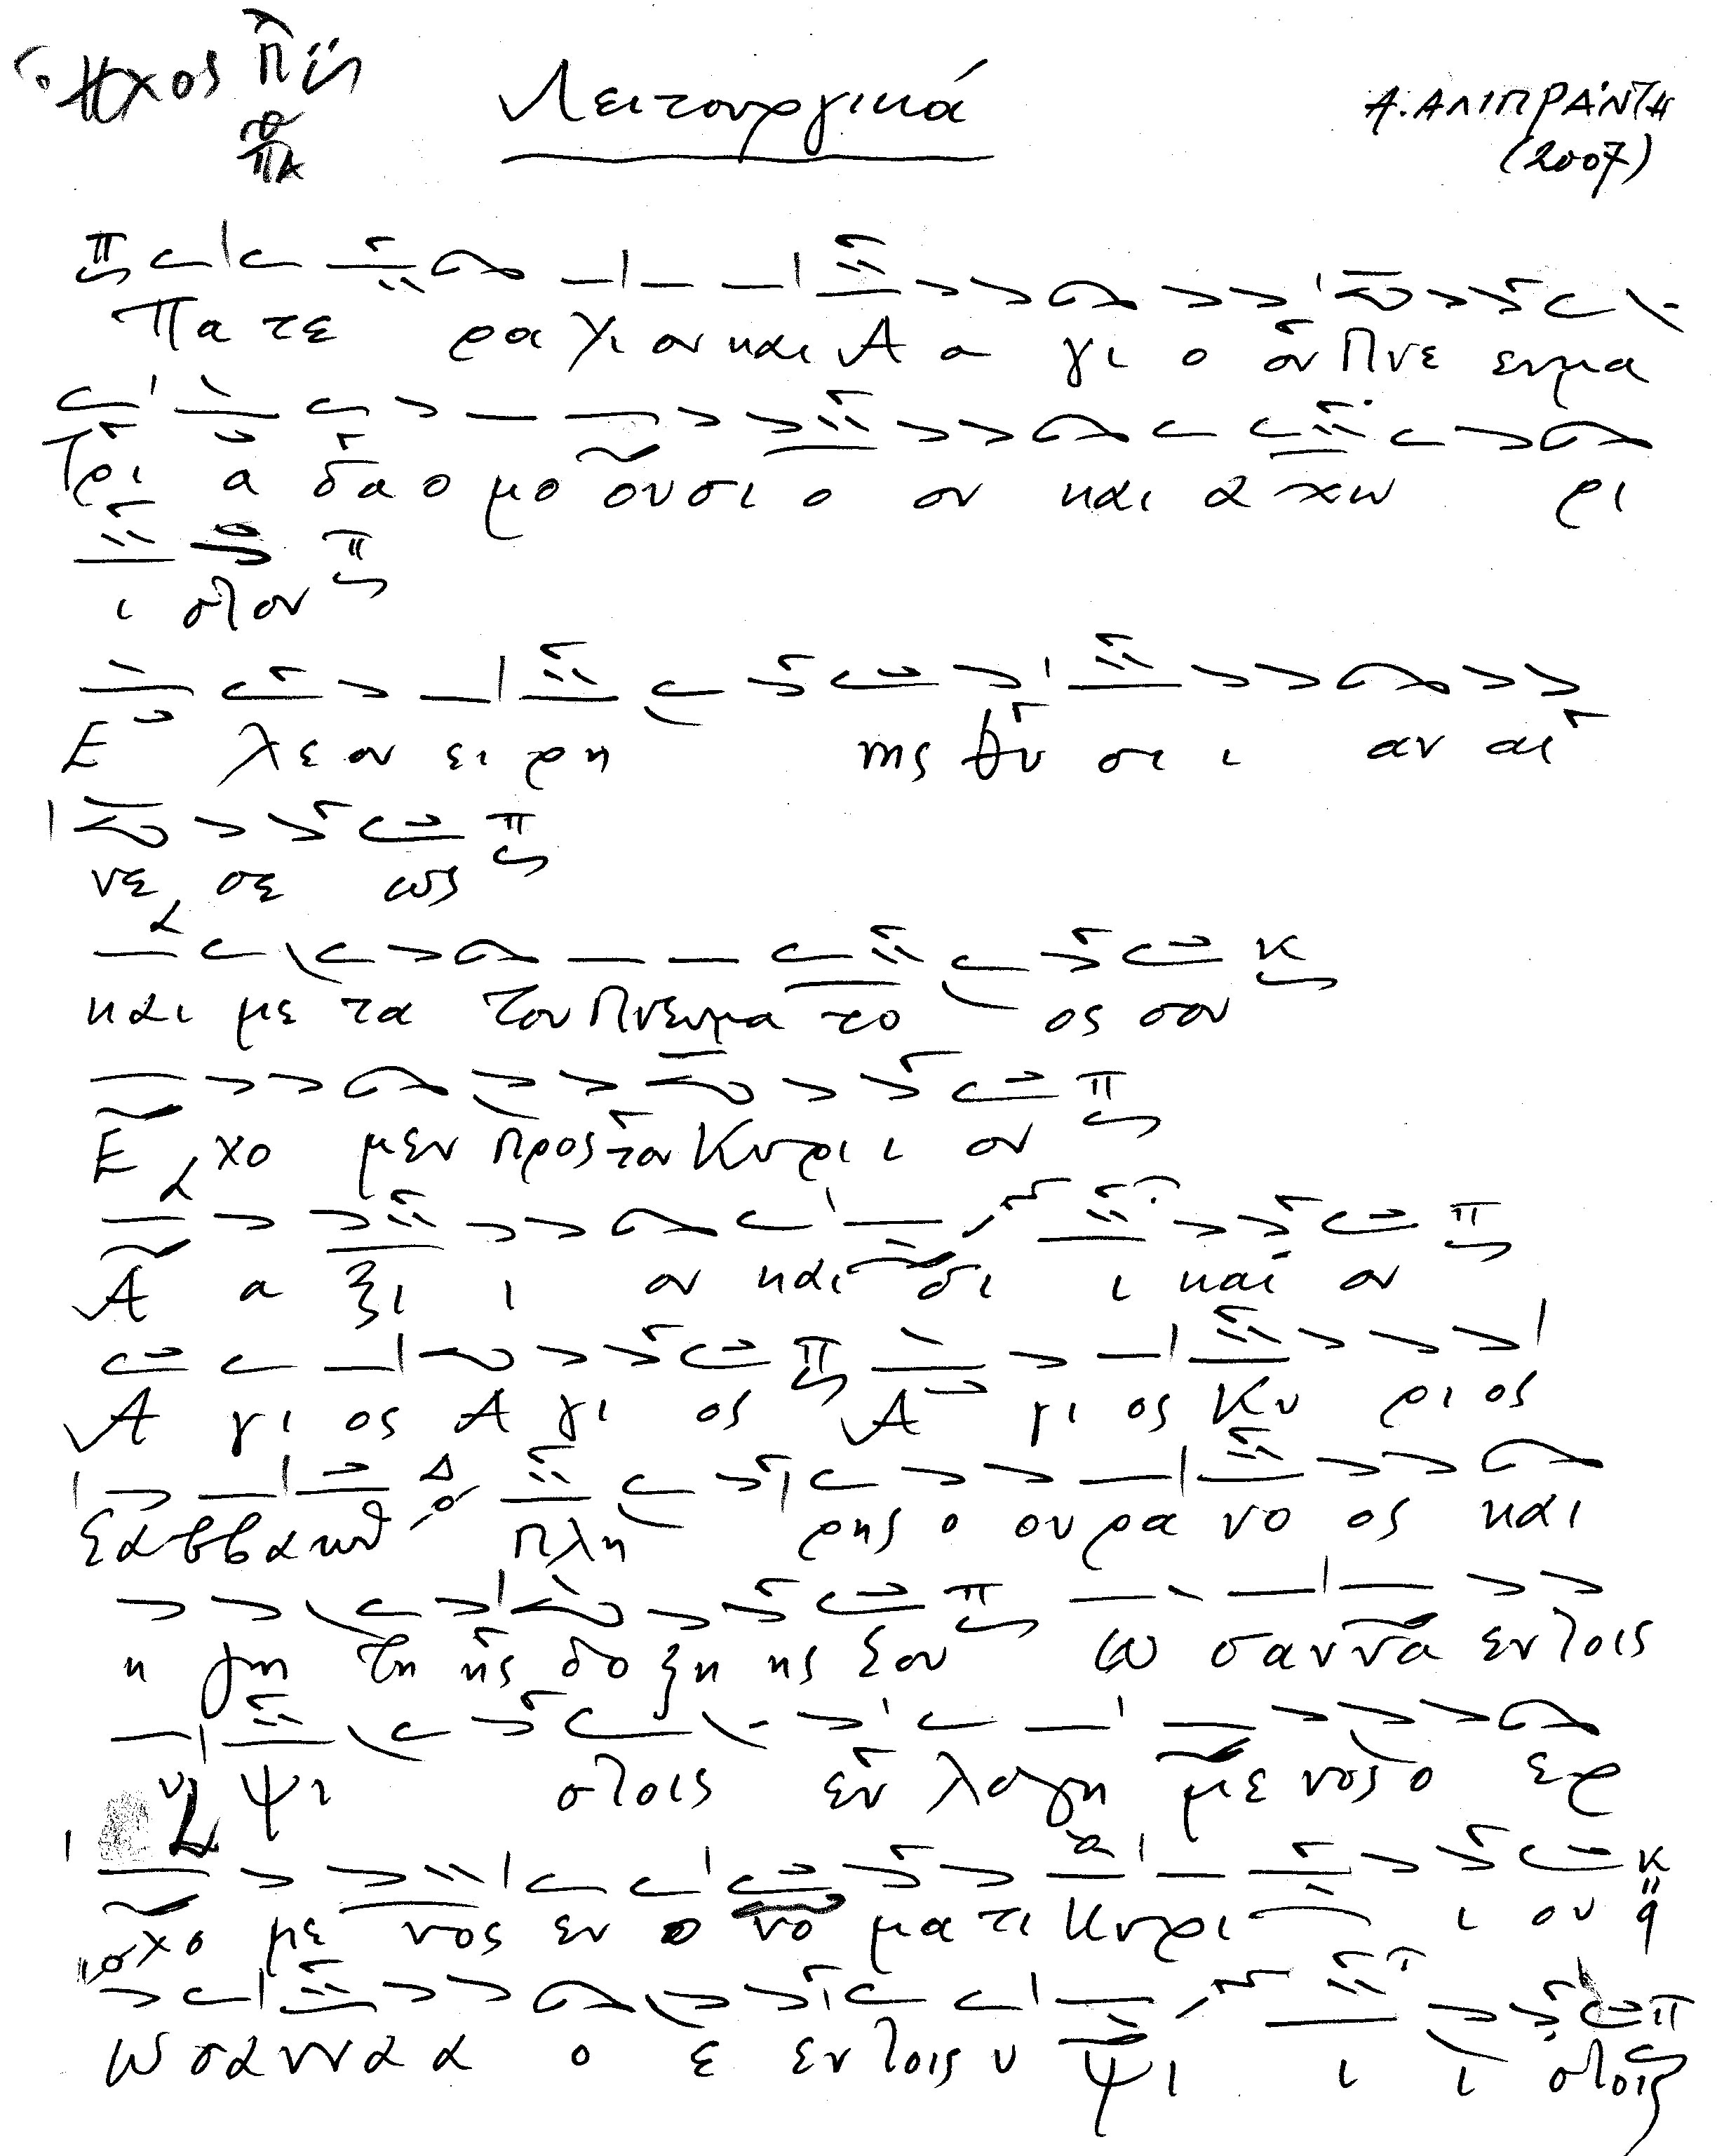 Ἦχος π Πα
Λειτουργικά
Α. ΑΛΙΠΡΑΝΤΗ
(2007)
Πα τε ρα Υι ον και Α α γι ο ον Πνε ευμα
Τρι α δα ο μο ουσι ο ον και α χω ρι
ι στον
Ε λε ον ει ρη νης θυ σι ι αν αι
νε σε ως
και με τα του Πνευμα το ος σου
Ε χο μεν προς τον Κυρι ι ον
Α α ξι ι ον και δι ι και ον
Α γι ος Α γι ος Α γι ος Κυ ρι ος
Σα ββα ωθ πλη ρης ο ουρα νο ος και
η γη τη ης δο ξη ης σου ω σαννα εν τοις
υ ψι στοις ευ λογη με νος ο ερ
χο με νος εν ο νο ματι Κυρι ι ου
ω σαννα α ο ε εν τοις υ ψι ι ι στοις